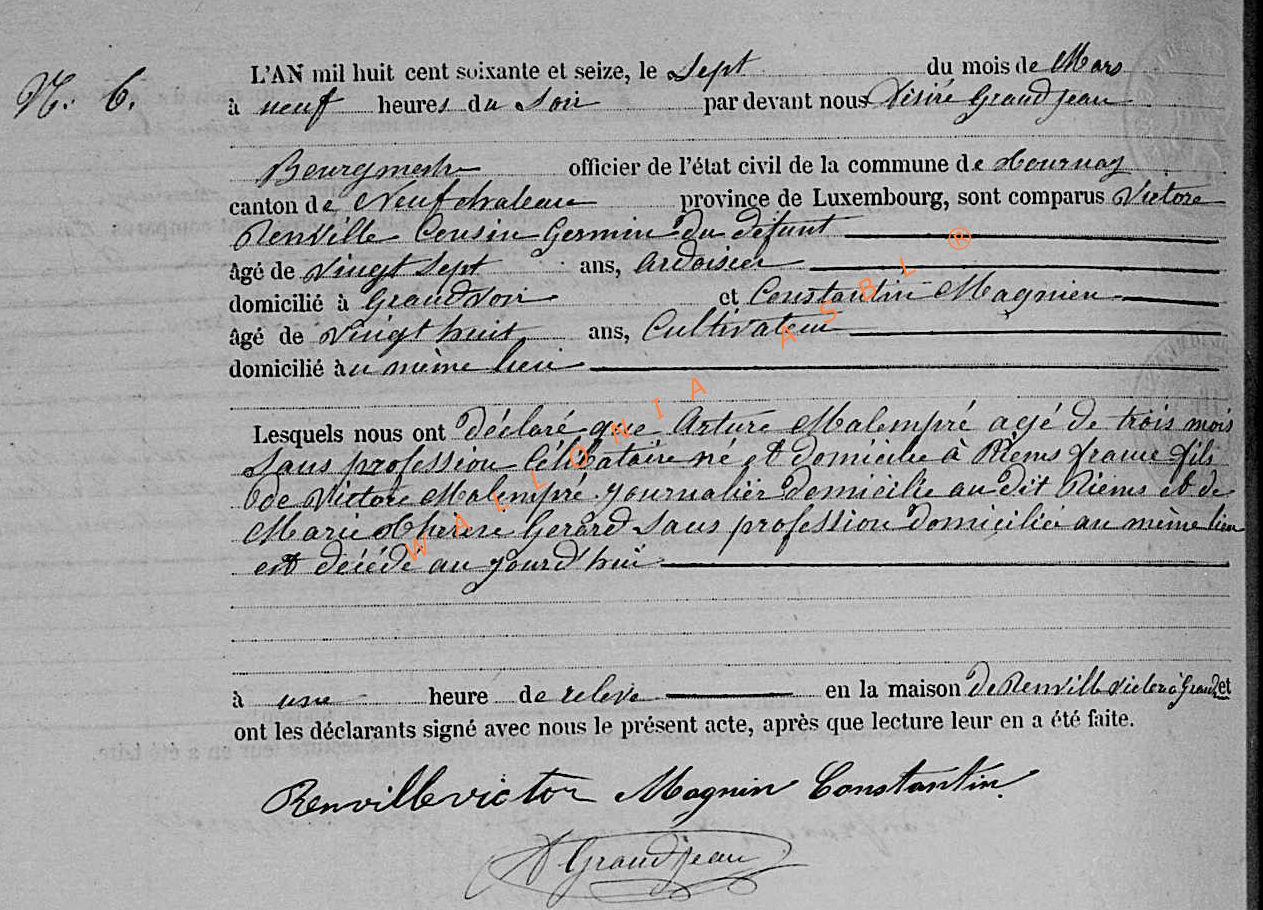 N. 6.
L'AN mil huit cent soixante et seize, le Sept du mois de Mars
à neuf heures du Soir par devant nous Désiré Grandjean
Bourgmestre officier de l'état civil de la commune de Tournay
canton de Neufchateau province de Luxembourg, sont comparus Victore
Renville Cousin Germin du défunt
âgé de vingt Sept ans, Ardoisier
domicilié à Grandvoir et Constantin Magnien
âgé de vingt huit ans, Cultivateur
domicilié au même lieu
Lesquels nous ont déclaré que Arture Malempré agé de trois mois
Sans profession Célibataire né et domicilie à Riems france fils
de Victore Malempré journalier domicilie au dit Riems et de
Marie Therese Gerard Sans profession domiciliée au même lieu
est décédé au jourd'hui
à une heure de releve en la maison de Renvill Victor à Grandv et
ont les déclarants signé avec nous le présent acte, après que lecture leur en a été faite.
Renville victor Magnin Constantin
D. Grandjean
WALLONIA ASBL ®